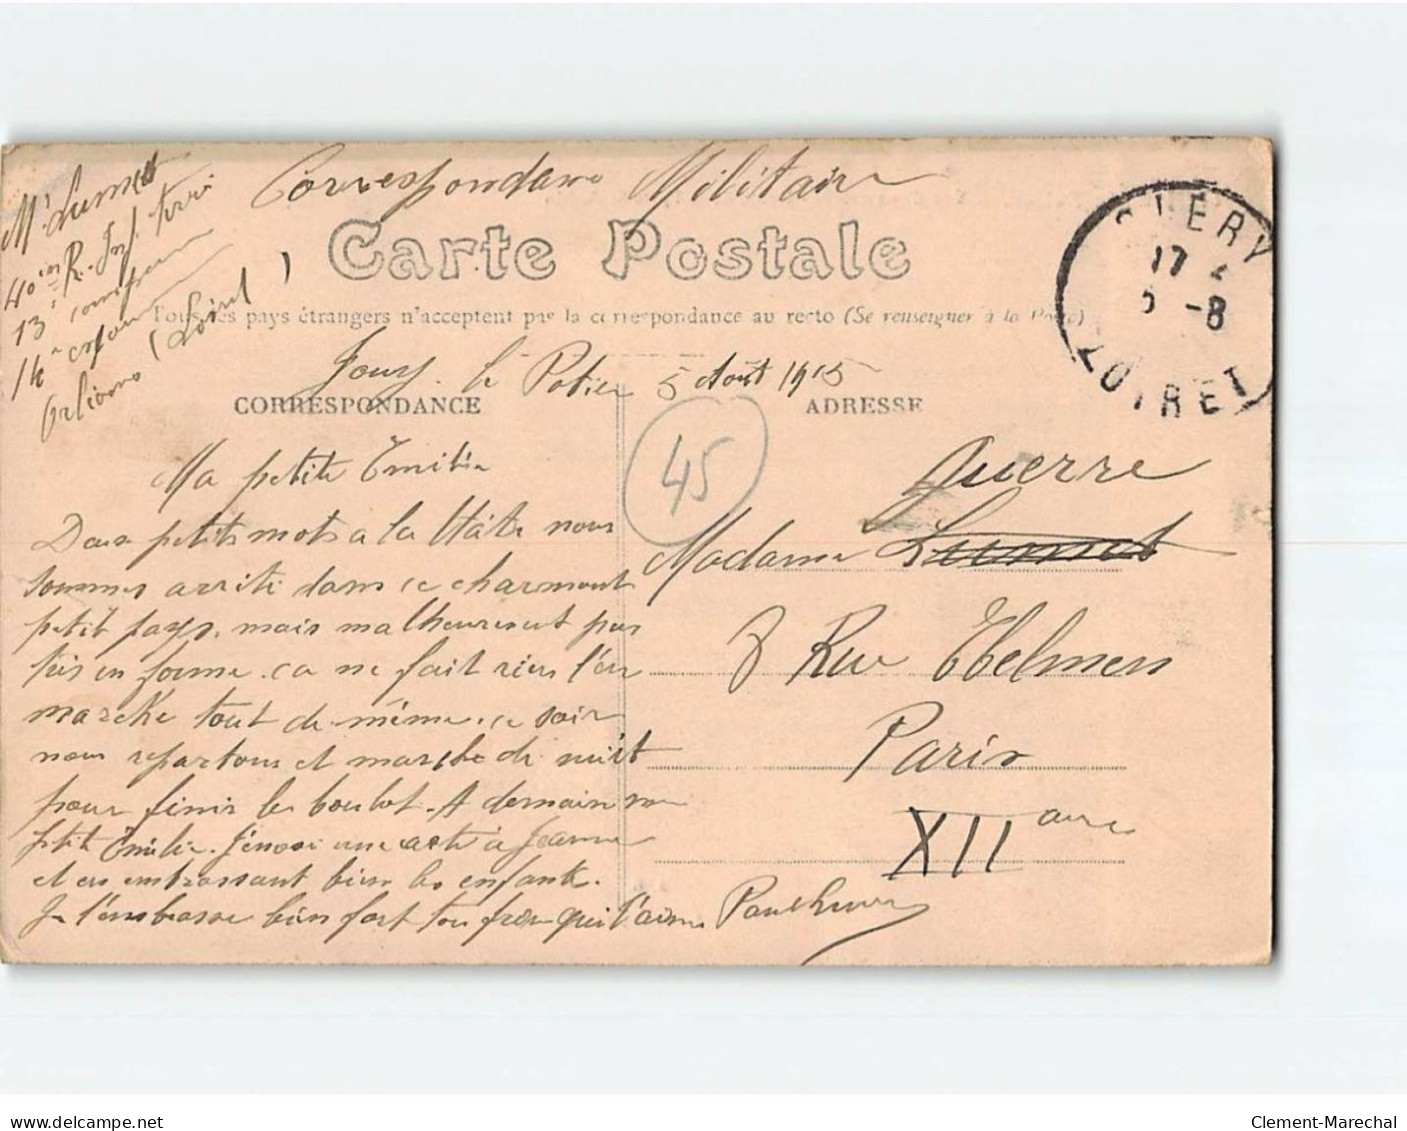 Mr Lumet
40in R. Inf. terri
13e
14e
Orléans (Loiret)
Correspondance Militaire
Carte Postale
Tous les pays étrangers n'acceptent pas la correspondance au recto (Se renseigner à la Poste)
17
5 -8
LOIRET
Jouy le Potier 5 Août 1915
CORRESPONDANCE
ADRESSE
45
Ma petite Emilie
Deux petits mots a la Hâte nous
sommes arrité dans ce charmant
petit pays, mais malheureusent pas
très en forme. ca ne fait rien l'on
marche tout de même. ce soir
nous repartons et marche de nuit
pour finir le boulot. A demain ma
petit Emilie. J'envoi une carte à Jeanne
et en embrassant bien les enfants.
Je t'embrasse bien fort ton frère qui t'aime Paul
Querre
Madame Lumet
8 Rue Thelmen
Paris
XII